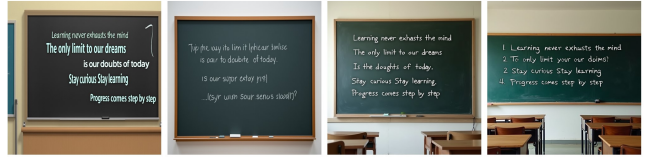 Learning never exhausts the mind
The only limit to our dreams
is our doubts of today
Stay curious Stay learning
Progress comes step by step
is our to doubte of today.
is our
Learning never exhausts the mind
The only limit to our dreams
Is the doughts of today.
Stay curious Stay learning
Progress comes step by step
1. Learning never exhausts the mind
2 To only limit your our
2. Stay curious Stay learning
4. Progress comes step by step